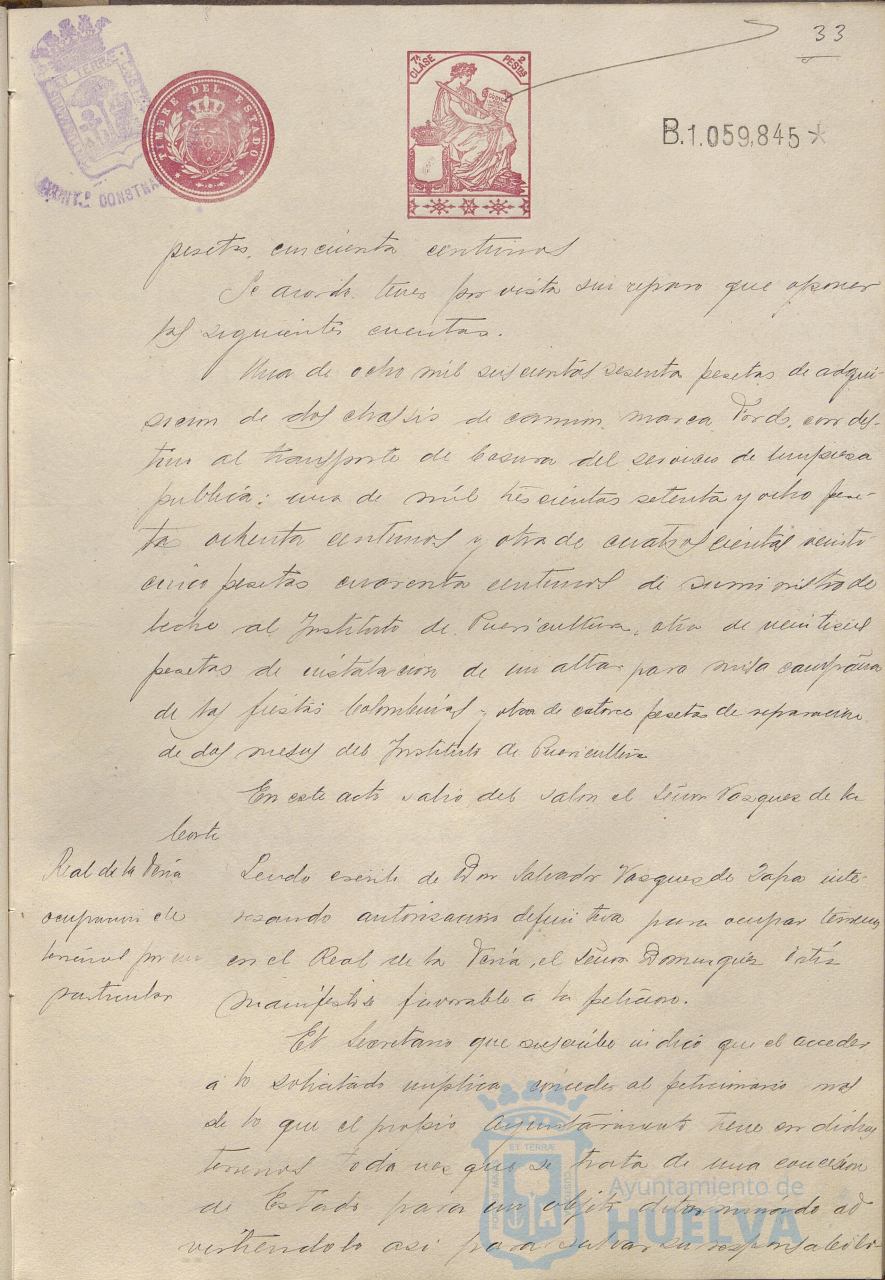 33
7ª CLASE 2 PESTAS
TIMBRE DEL ESTADO
B.1.059,845*
pesetas, cincuenta centimos
Se acordó tener por vista sin reparo que oponer
las siguientes cuentas.
Una de ocho mil seiscientas sesenta pesetas de adqui-
sicion de dos chassis de camion marca Ford, con des-
tino al transporte de basura del servicio de limpieza
publica: una de mil trescientas setenta y ocho pese-
tas ochenta centimos y otra de cuatrocientas veinti-
cinco pesetas cuarenta centimos de suministro de
leche al Instituto de Puericultura, otra de veintiseis
pesetas de instalacion de un altar para misa campaña
de las fiestas Colombinas y otra de catorce pesetas de reparacion
de dos mesas del Instituto de Puericultura
En este acto salio del salon el Señor Vazquez de la
Corte
Real de la Feria
ocupacion de
terrenos por un
particular
Leido escrito de Don Salvador Vazquez de Zafra inte-
resando autorizacion definitiva para ocupar terrenos
en el Real de la Feria, el Señor Dominguez Ortiz
manifestóse favorable a la peticion.
El Secretario que suscribe indicó que el acceder
a lo solicitado implica conceder al peticionario mas
de lo que el propio Ayuntamiento tiene en dichos
terrenos toda vez que se trata de una concesion
de Estado para un objeto determinado ad-
virtiendolo asi para salvar su responsabili-
Ayuntamiento de
HUELVA